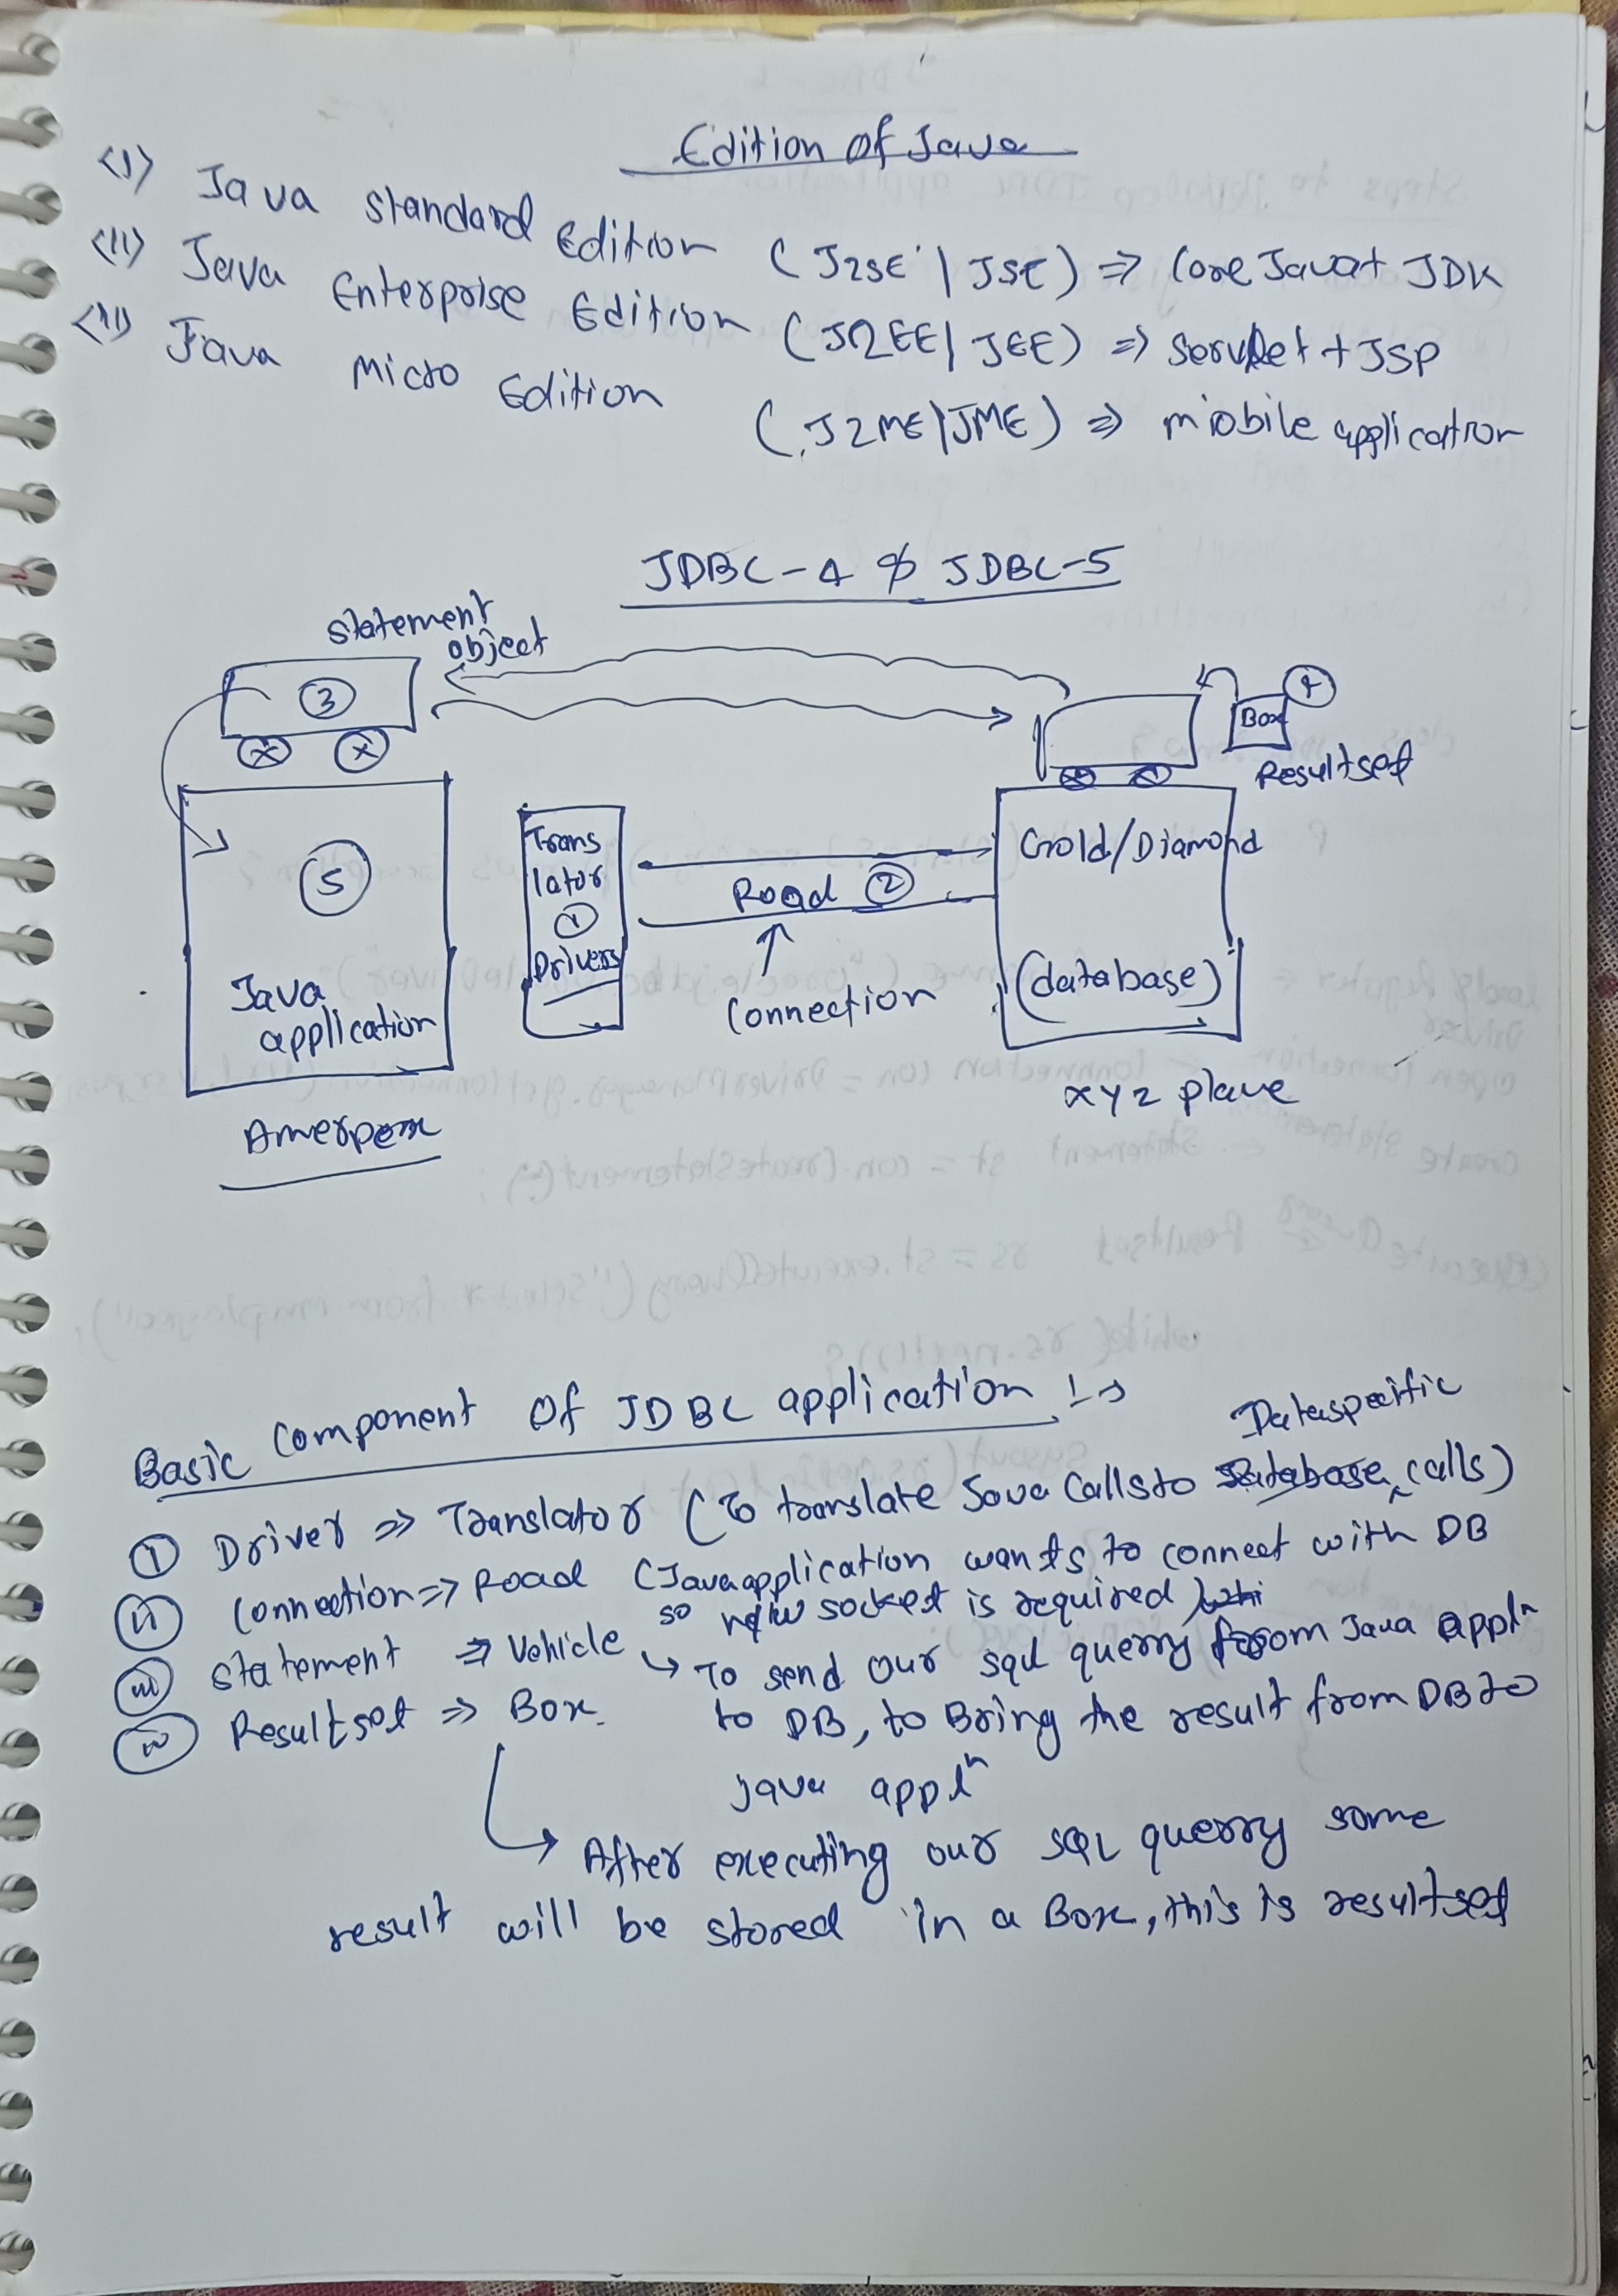 Edition of Java
<I> Java standard Edition (J2SE | JSE) => Core Java + JDK
<II> Java Enterprise Edition (J2EE | JEE) => Servlet + JSP
<III> Java Micro Edition (J2ME | JME) => mobile application
JDBC-4 & JDBC-5
statement
object
3
4
Box
Resultset
Translator
1
Drivers
Road 2
Connection
Gold/Diamond
(database)
xyz plane
5
Java
application
Basic Component Of JDBC application :->
Dataspecific
(i) Driver => Translator (To translate Java Calls to Database calls)
(ii) Connection => Road (Java application wants to connect with DB
so new socket is required)
(iii) statement => Vehicle -> To send our sql querry from Java appln
to DB, to Bring the result from DB to
java appln
(iv) Resultset => Box.
-> After executing our SQL querry some
result will be stored in a Box, this is resultset